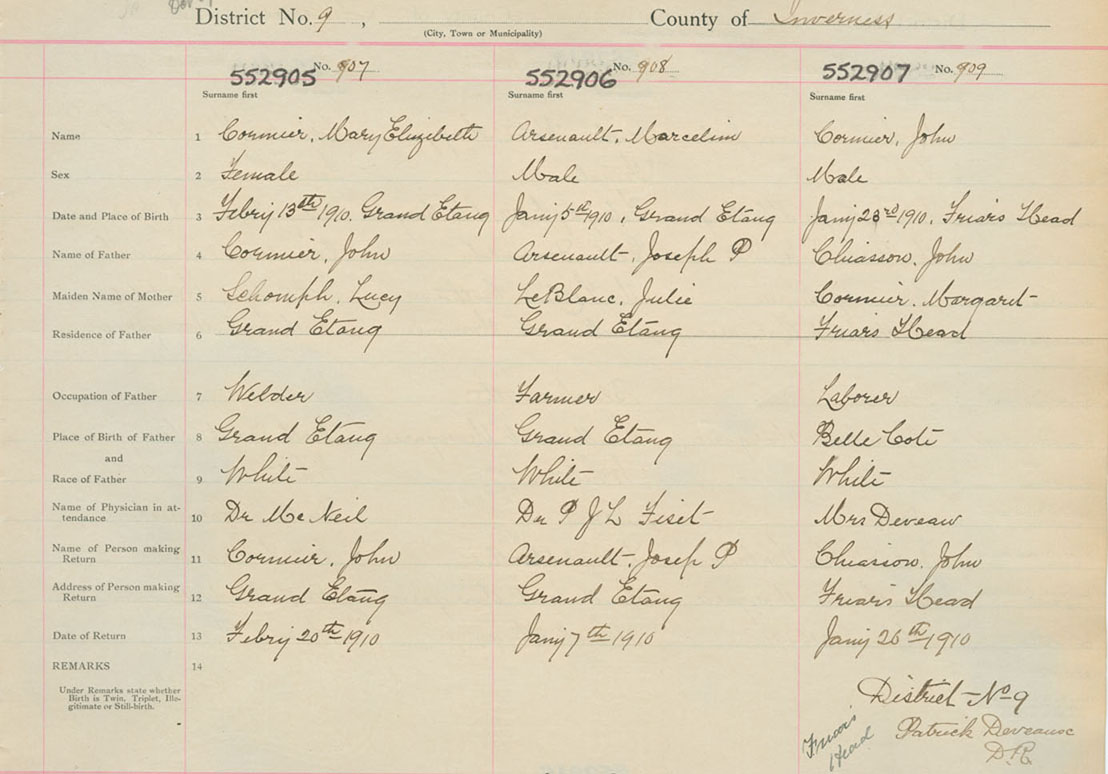 District No. 9 , County of Inverness
(City, Town or Municipality)
552905 No. 907 552906 No. 908 552907 No. 909
Surname first Surname first Surname first
Name 1 Cormier, Mary Elizibeth Arsenault, Marcelin Cormier, John
Sex 2 Female Male Male
Date and Place of Birth 3 Febry 13th 1910, Grand Etang Jany 5th 1910, Grand Etang Jany 23rd 1910, Friars Head
Name of Father 4 Cormier, John Arsenault, Joseph P Chiasson, John
Maiden Name of Mother 5 Schomph, Lucy LeBlanc, Julie Cormier, Margaret
Residence of Father 6 Grand Etang Grand Etang Friars Head
Occupation of Father 7 Welder Farmer Laborer
Place of Birth of Father 8 Grand Etang Grand Etang Belle Cote
and
Race of Father 9 White White White
Name of Physician in at-
tendance 10 Dr McNeil Dr P J L Fiset Mrs Deveau
Name of Person making
Return 11 Cormier, John Arsenault, Joseph P Chiasson, John
Address of Person making
Return 12 Grand Etang Grand Etang Friars Head
Date of Return 13 Febry 20th 1910 Jany 7th 1910 Jany 26th 1910
REMARKS 14
Under Remarks state whether
Birth is Twin, Triplet, Ille-
gitimate or Still-birth.
District No 9
Friars
Head
Patrick Deveause
D.R.